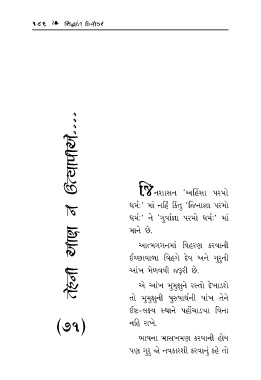 ૧૮૬ ❧ સિદ્ધાંત દિવાકર
(૭૧) તેહની આણ ન ઉત્થાપીએ....
જિનશાસન ‘અહિંસા પરમો
ધર્મઃ’ માં નહિં કિંતુ ‘જિનાજ્ઞા પરમો
ધર્મઃ’ ને ‘ગુર્વાજ્ઞા પરમો ધર્મઃ’ માં
માને છે.
આત્મગગનમાં વિહરણ કરવાની
ઈચ્છાવાળા વિહગે દેવ અને ગુરુની
આંખ મેળવવી જરૂરી છે.
એ આંખ મુમુક્ષુને રસ્તો દેખાડશે
તો મુમુક્ષુની પુરુષાર્થની પાંખ તેને
ઈષ્ટ-લક્ષ્ય સ્થાને પહોંચાડ્યા વિના
નહિ રાખે.
ભાવના માસખમણ કરવાની હોય
પણ ગુરુ જો નવકારશી કરવાનું કહે તો